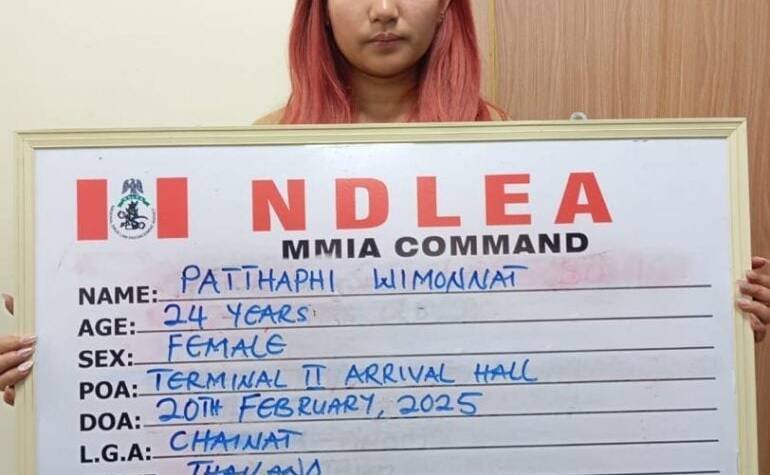 NDLEA
MMIA COMMAND
NAME: PATTHAPHI WIMONNAT
AGE: 24 YEARS
SEX: FEMALE
POA: TERMINAL II ARRIVAL HALL
DOA: 20TH FEBRUARY, 2025
L.G.A: CHAINAT
THAILAND